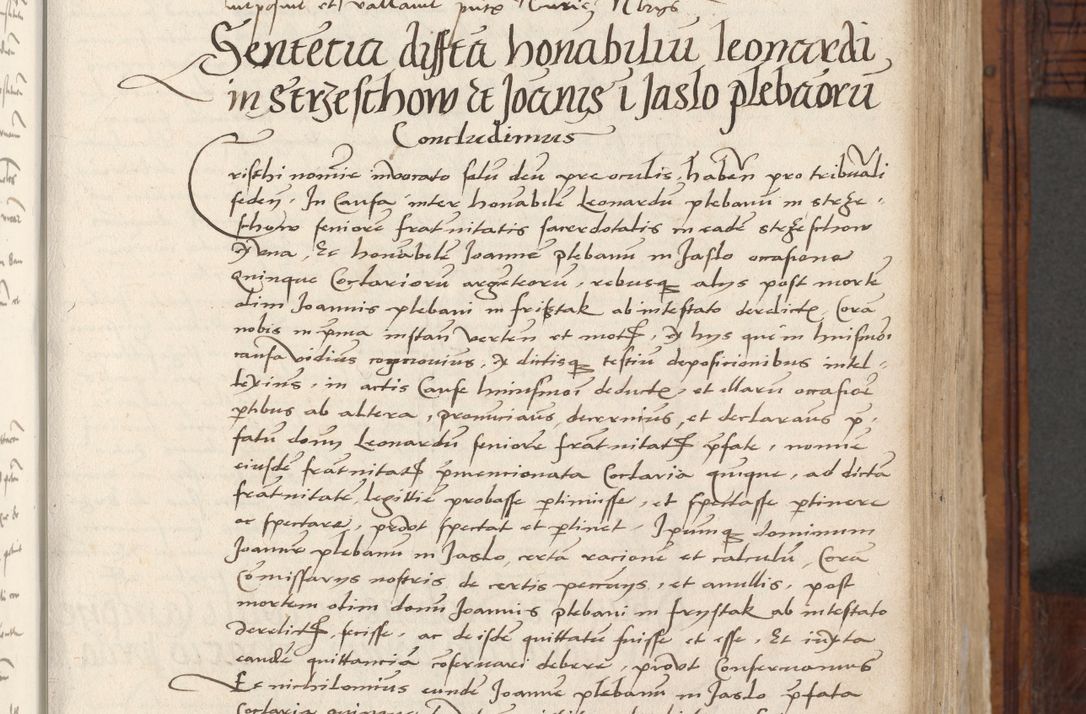 Sententia diffinitiva honabiliu leonardi
in Strzeschow et Joanis i Jaslo plebaoru
Concludimus
Cristhi nomie invocato solu deu pre oculis haben pro tribunali
seden. In Causa inter honabile Leonardu plebanu in strze-
schow seniore fratnitatis sacerdotalis in eade strzeschow
ex una, Et honabile Joanne plebanu in Jaslo occasione
Quinque Coclarioru argeteoru, rebusq alys post morte
olim Joannis plebani in fristak ab intestato derelict, Cora
nobis in pma instan verten et mot, Ex hys que in huismoi
causa vidius cognovius, Ex dictisq testiu deposicionibus intel-
lexius, in actis Cause huiusmoi deduct, et illaru occasioe
ptibus ab altera, pronuciaus, decernius, et declaraus p-
fatu donu Leonardu seniore fratnitat pfate, nomine
eiusde fratnitat pmencionata Coclaria quique, ad dicta
fratnitate legittie probasse ptinuisse, et spectasse ptinere
ac spectare, prout spectat et ptinet. Ipumq dominum
Joanne plebanu in Jaslo, certa racione et calculu, Cora
Comissarys nostris de certis pecunys, et anullis, post
mortem olim donu Joannis plebani in frystak ab intestato
derelict, fecisse, ac de isde quittatu fuisse et esse, Et iuxta
eande quittancia coseruari debere, prout Conseruamus
Et nichilominus eunde Joanne plebanu in Jaslo pfata